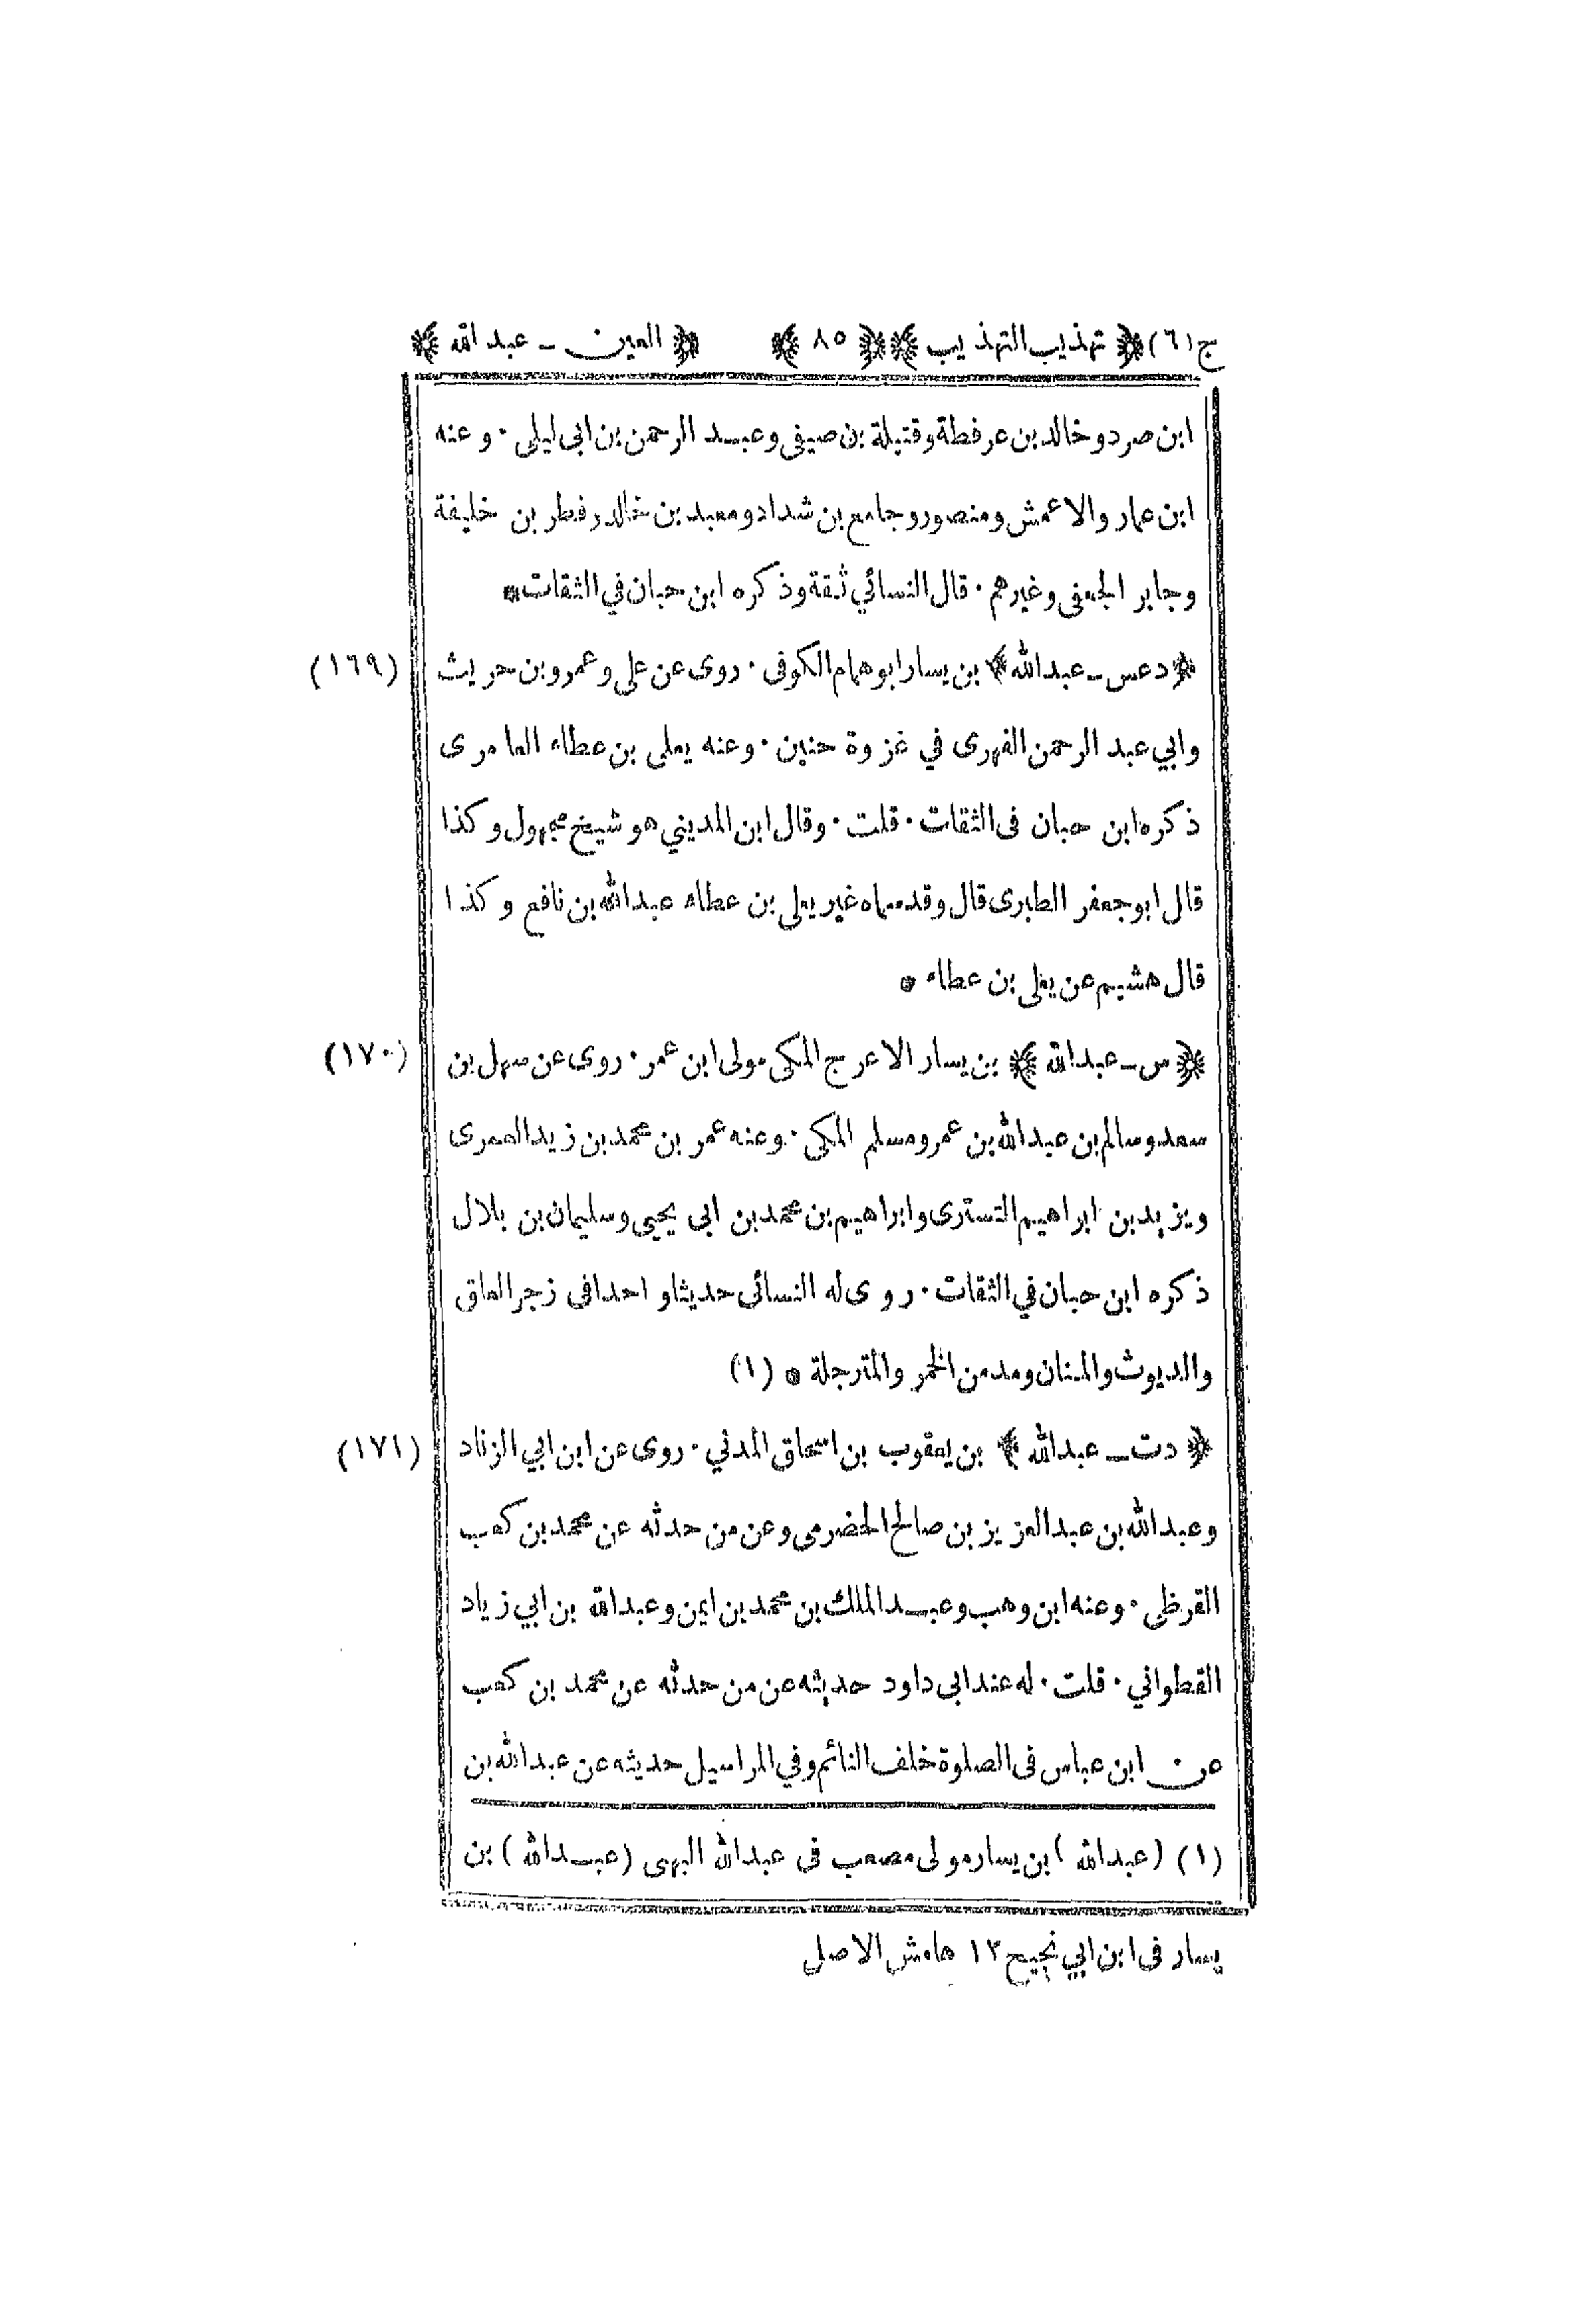 ج (٦) ﴿ تهذيب التهذيب ﴾ ﴿ ٨٥ ﴾ ﴿ العين ـ عبد الله ﴾
ابن صرد وخالد بن عرفطة وقتيلة بن صيفى وعبد الرحمن بن ابى ليلى ٠ وعنه
ابن عمار والاعمش ومنصور وجامع بن شداد ومعبد بن خالد وفطر بن خليفة
وجابر الجعفى وغيرهم ٠ قال النسائي ثقة وذكره ابن حبان في الثقات *
﴿ دعس ـ عبد الله ﴾ بن يسار ابو همام الكوفى ٠ روى عن على وعمرو بن حريث (١٦٩)
وابي عبد الرحمن الفهرى في غزوة حنين ٠ وعنه يعلى بن عطاء العامرى
ذكره ابن حبان فى الثقات ٠ قلت ٠ وقال ابن المديني هو شيخ مجهول وكذا
قال ابو جعفر الطبرى قال وقد سماه غير يعلى بن عطاء عبد الله بن نافع وكذا
قال هشيم عن يعلى بن عطاء *
﴿ س ـ عبد الله ﴾ بن يسار الاعرج المكى مولى ابن عمر ٠ روى عن سهل بن (١٧٠)
سعد وسالم بن عبد الله بن عمر ومسلم المكى ٠ وعنه عمر بن محمد بن زيد العمرى
ويزيد بن ابراهيم التسترى وابراهيم بن محمد بن ابى يحيى وسليمان بن بلال
ذكره ابن حبان في الثقات ٠ روى له النسائى حديثا واحدا فى زجر العاق
والديوث والمنان ومدمن الخمر والمترجلة * (١)
﴿ دت ـ عبد الله ﴾ بن يعقوب بن اسحاق المدني ٠ روى عن ابن ابي الزناد (١٧١)
وعبد الله بن عبد العزيز بن صالح الحضرمى وعن من حدثه عن محمد بن كعب
القرظى ٠ وعنه ابن وهب وعبد الملك بن محمد بن ايمن وعبد الله بن ابي زياد
القطواني ٠ قلت ٠ له عند ابى داود حديثه عن من حدثه عن محمد بن كعب
عن ابن عباس فى الصلوة خلف النائم وفي المراسيل حديثه عن عبد الله بن
(١) (عبد الله) ابن يسار مولى مصعب فى عبد الله البهى (عبد الله) بن
يسار فى ابن ابي نجيح ١٢ هامش الاصل